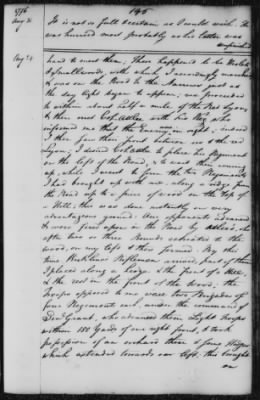 1776
145
Aug 31
It is not so full & certain as I could wish. He
was hurried most probably as his letter was
unfinished
Aug 29
hand to meet them. There happened to be Haslet
& Smallwoods, with which I accordingly marched
& was on the Road to the Narrows just as
the day light began to appear, we proceeded
to within about half a mile of the Red Lyon,
& there met Col. Atlee with his Regt who
informed me that the Enemy were in sight; indeed
I then saw their front between us & the red
Lyon; I desired Col Atlee to place his Regiment
on the left of the Road, & to wait their coming
up, while I went to form the two Regiments
I had brought up with me along a ridge from
the Road up to a piece of wood on the top of
a Hill; this was done instantly on very
advantageous ground. Our opponents advanced
& were fired upon in the Road by Atlee's, who
after two or three Rounds retreated to the
wood on my left & there formed. By this
time Kichline's Riflemen arrived, part of them
I placed along a hedge & the foot of a Hill,
& the rest in the front of the Wood; the
troops opposed to me were two Brigades of
four Regiments each, under the command of
Genl Grant, who advanced their light troops
within 150 Yards of our right front, & took
possession of an orchard there & some Hedges
which extended towards our left, this brought
on